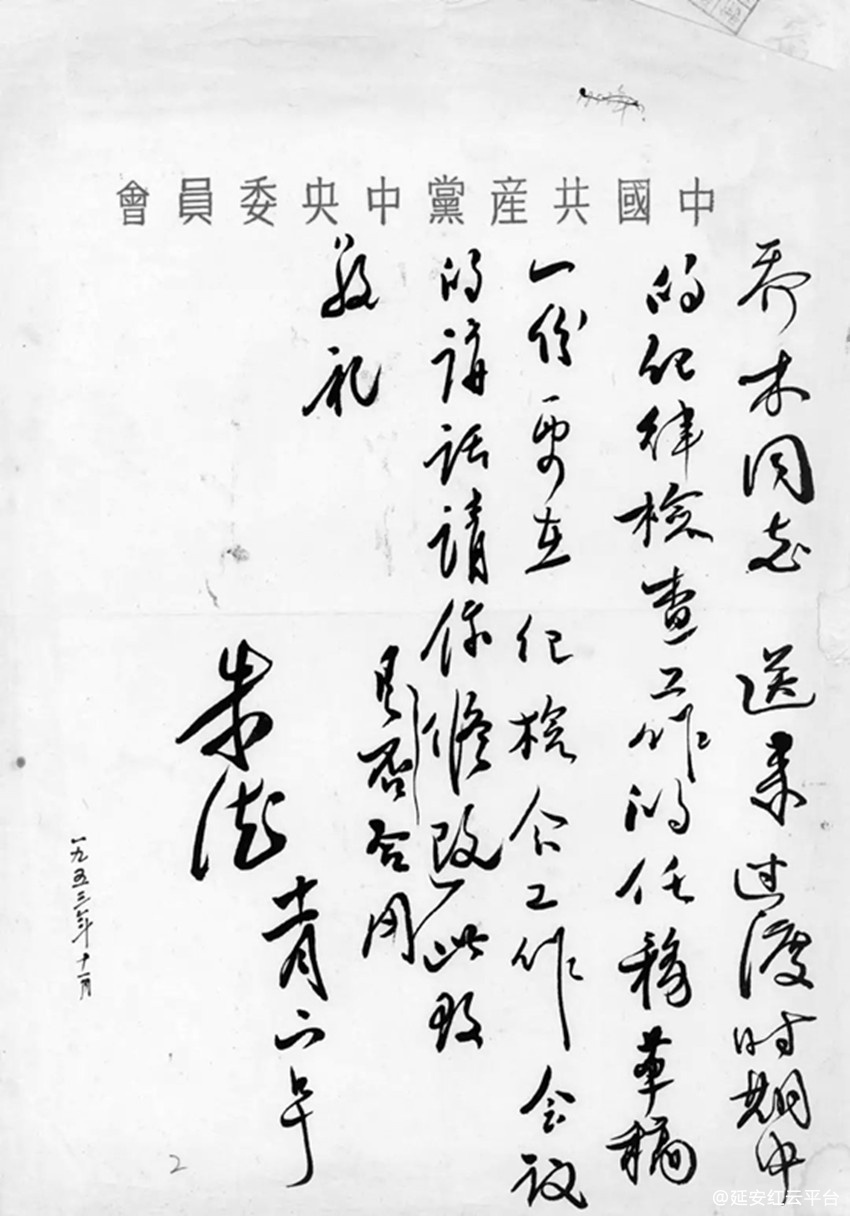 中國共産黨中央委員會
乔木同志 送来过渡时期中
的纪律检查工作的任务草稿
一份要在纪检会工作会议
的讲话请你修改 此致
是否合用
敬礼
朱德
十一月六
一九五三年十一月
2
@延安红云平台